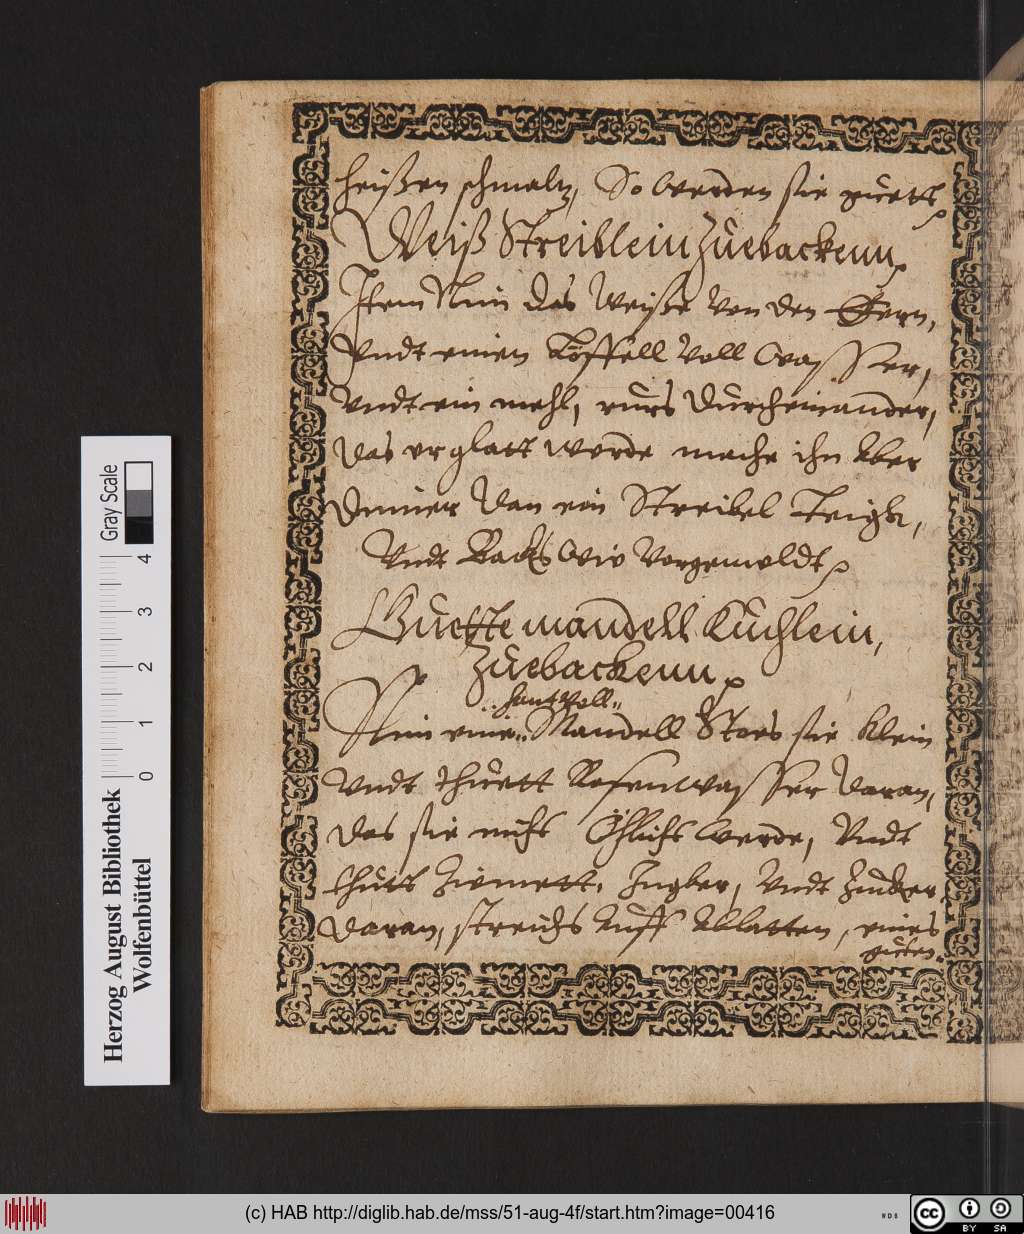 heißen schmalz, So werden sie guett
Weiß Streiblein Zuebackenn
Item Nim das Weiße von den Eyern,
Vndt einen Löffell voll Wasser,
Vndt ein mehl, rurs durcheinander,
das er glatt werde mache ihn Aber
dinner dan ein Streibel Teigk,
Vndt Backs wie vorgemeldt
Guette mandell Küchlein,
Zuebackenn
hantvoll
Nim eine Mandell Stoes sie klein
Vndt thuett Rosenwasser daran,
das sie nicht Öhlicht werde, Vndt
thutt Zimett, Ingber, Vndt Zucker
daran, streichs Auff Ablatten, eines
guten
Gray Scale
4 3 2 1 0
Herzog August Bibliothek
Wolfenbüttel
(c) HAB http://diglib.hab.de/mss/51-aug-4f/start.htm?image=00416
WDB
cc BY SA